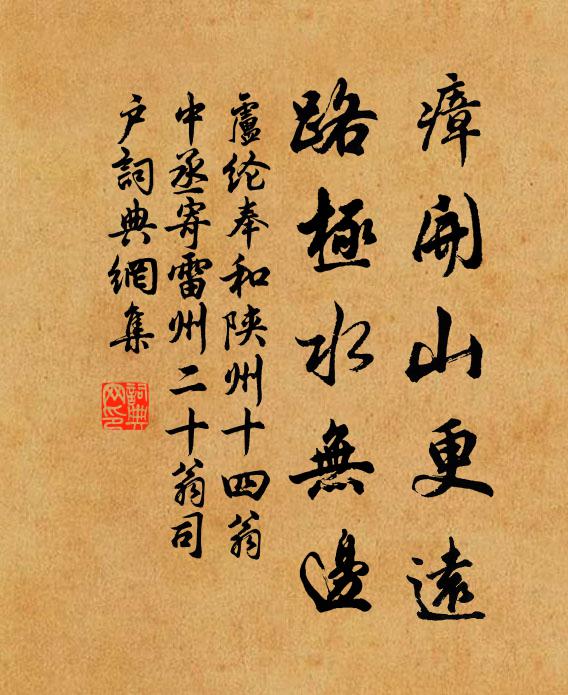 瘴開山更遠
路極水無邊
盧纶奉和陕州十四翁
中丞寄雷州二十翁司
户詞典網集
詞典
網印